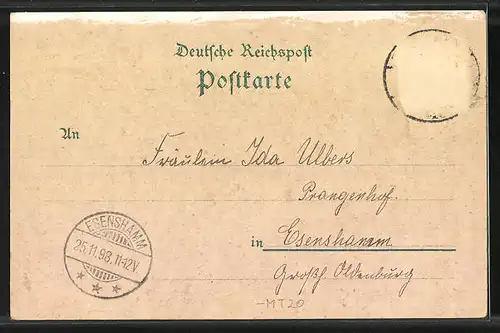 Deutsche Reichspost
Postkarte
An
Fräulein Ida Ulbers
Prangenhof.
in Esenshamm
Großh. Oldenburg
ESENSHAMM
25.11.98.11-12V.
* * *
-MT20